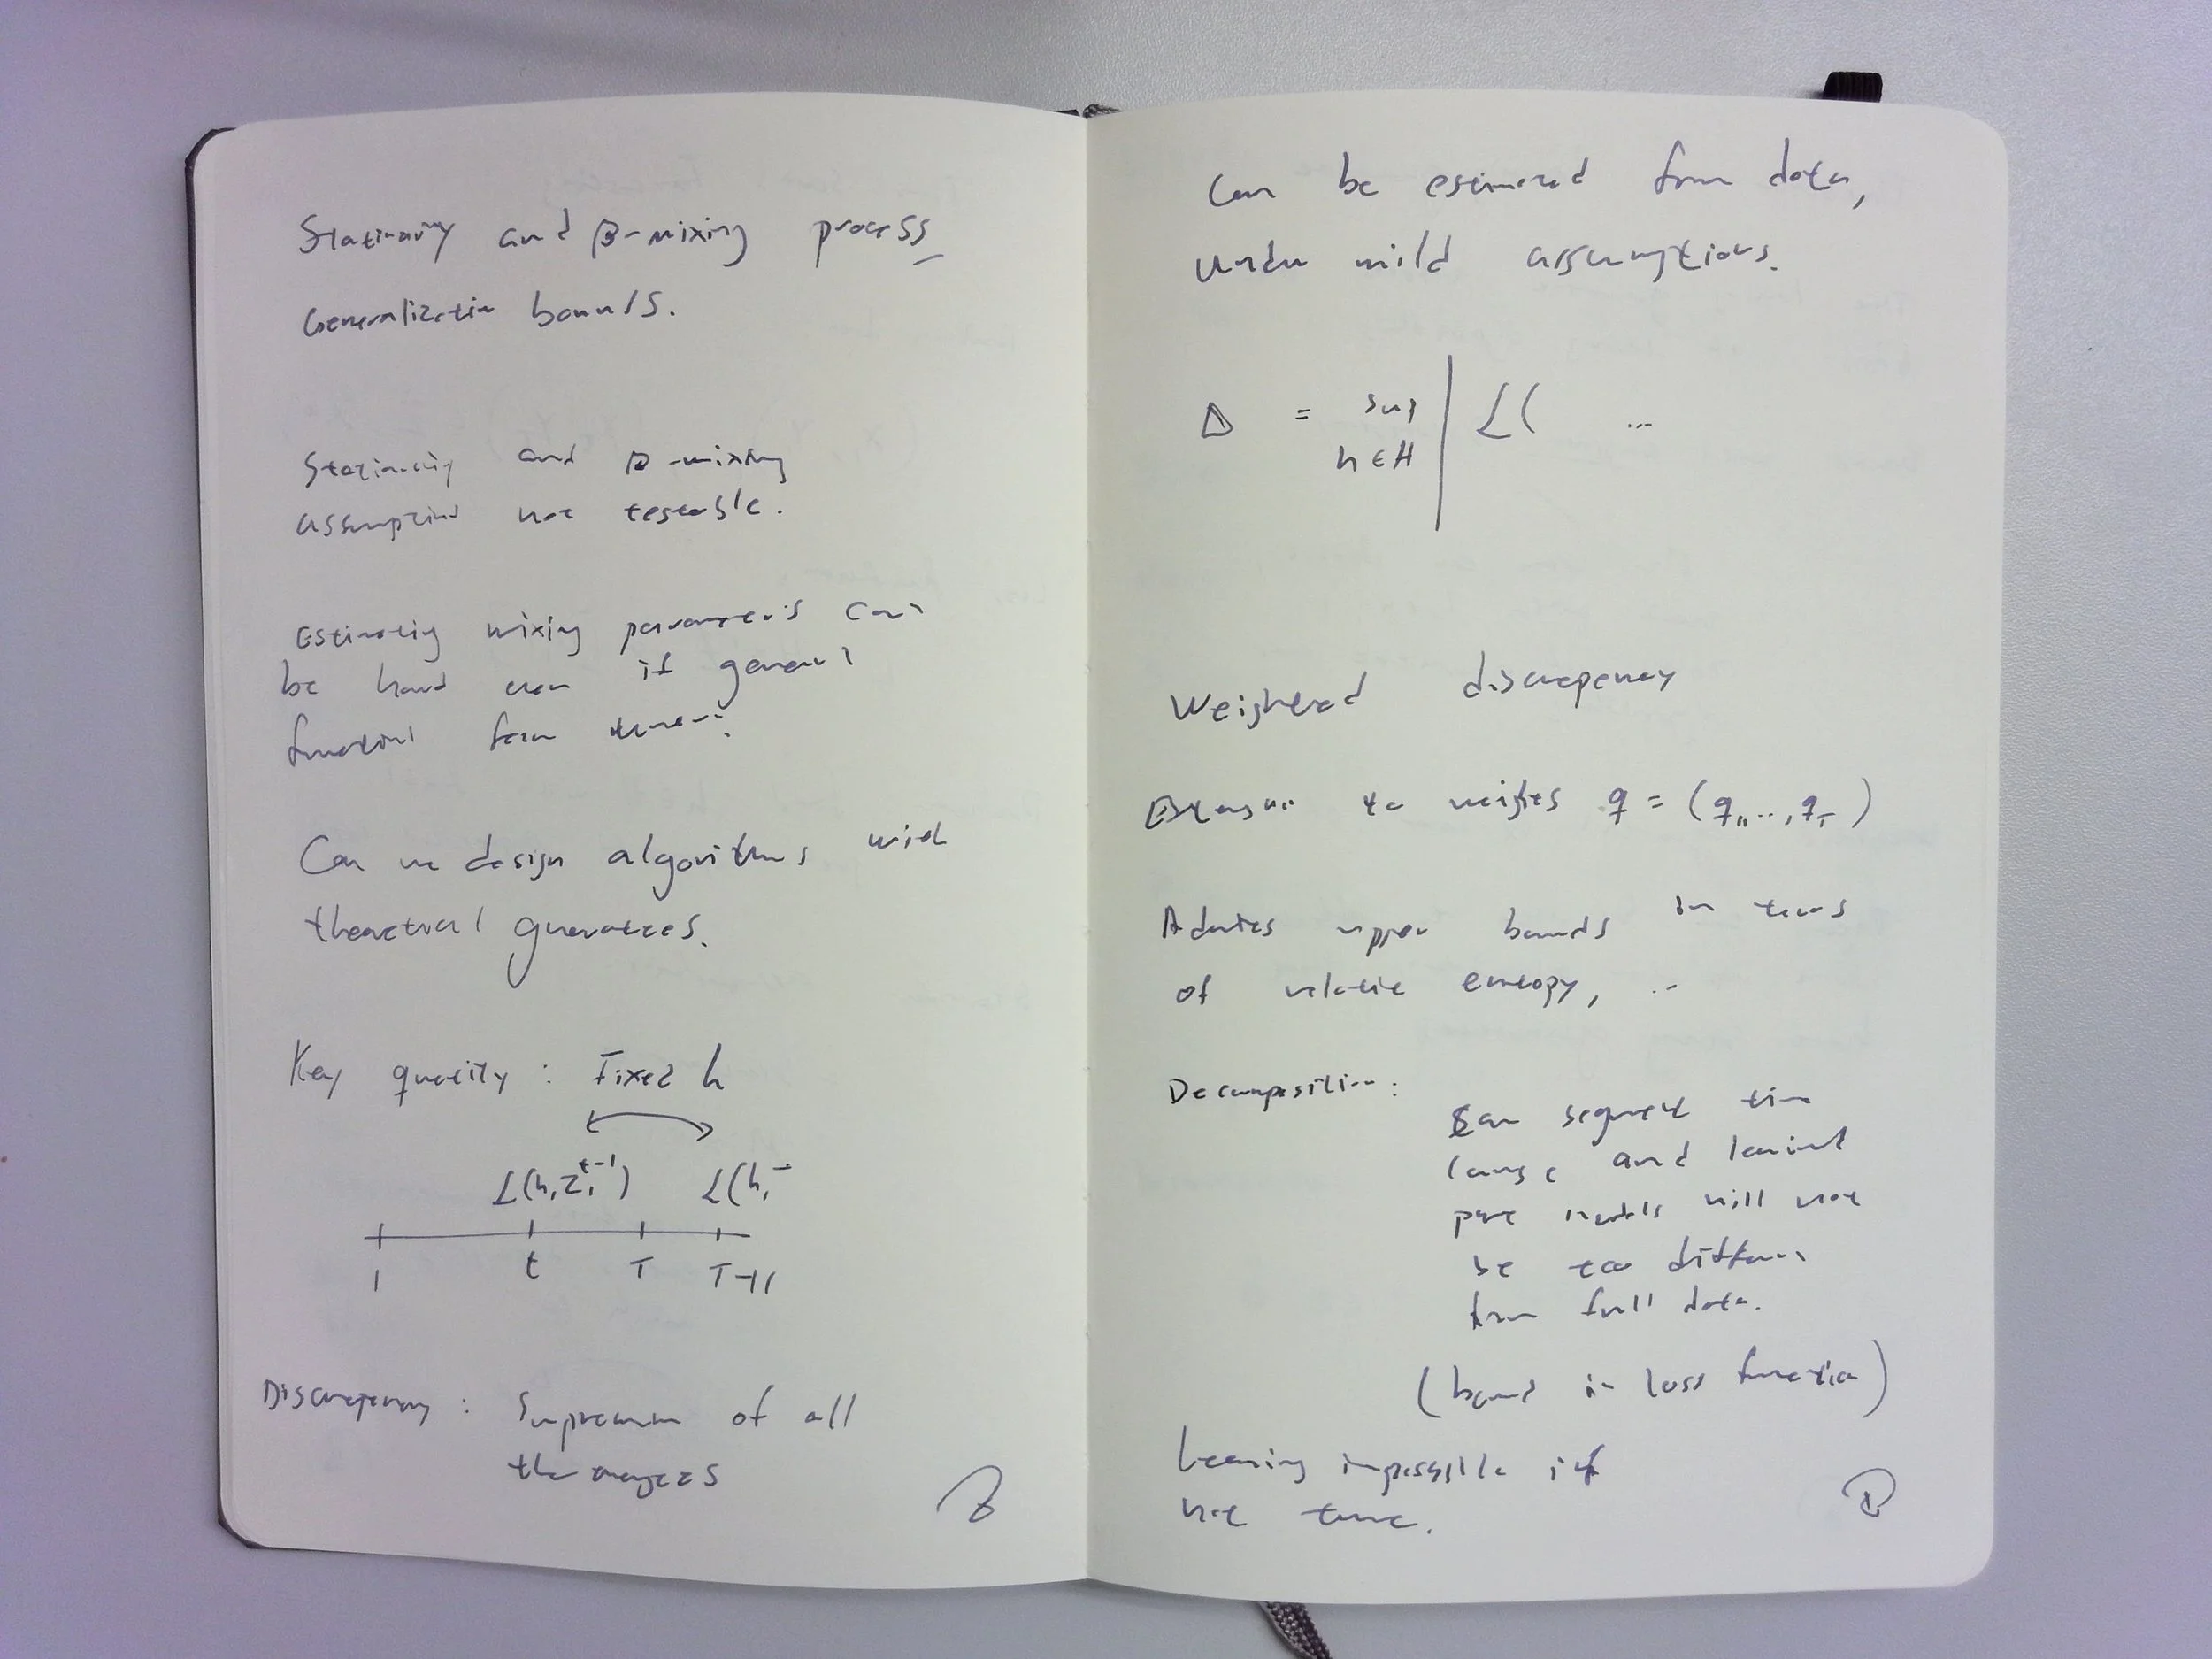 Stationarity and β-mixing process
Generalization bounds.
Stationarity and β-mixing
assumption not testable.
Estimating mixing parameters can
be hard even if general
functional form known.
Can we design algorithms with
theoretical guarantees.
Key quantity : Fixed h
L(h, Z₁ᵗ⁻¹) L(h,
1 t T T+1
Discrepancy : Supremum of all
Can be estimated from data,
under mild assumptions.
Δ = sup | L( ...
h ∈ H
Weighted discrepancy
Extension to weights q = (q₁,..,q_T)
Admits upper bounds in terms
of relative entropy, ..
Decomposition :
Can segment time
and
part models will not
be too different
from full data.
(bound in loss function)
Learning impossible if
not true.